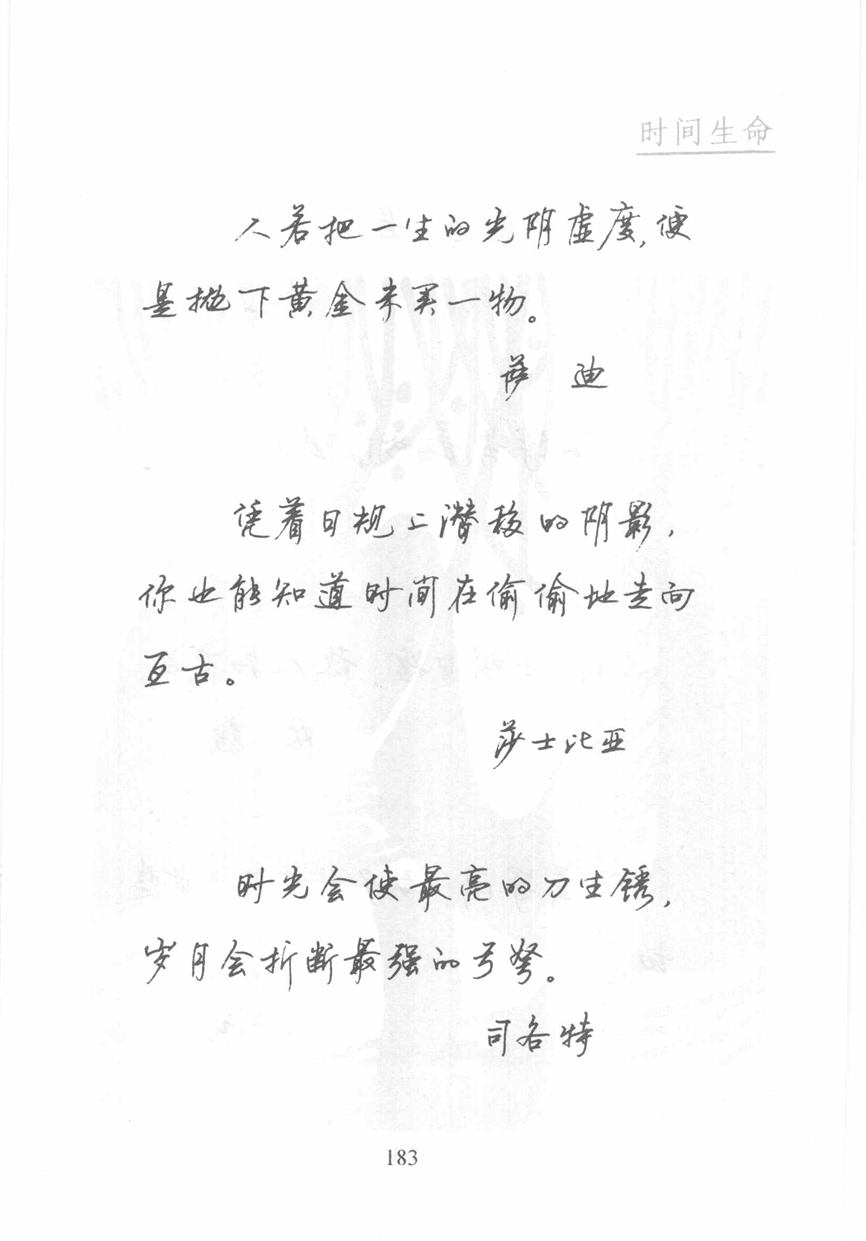 时间生命
人若把一生的光阴虚度,便
是抛下黄金未买一物。
萨 迪
凭着日规上潜移的阴影,
你也能知道时间在偷偷地走向
亘古。
莎士比亚
时光会使最亮的刀生锈,
岁月会折断最强的弓弩。
司各特
183